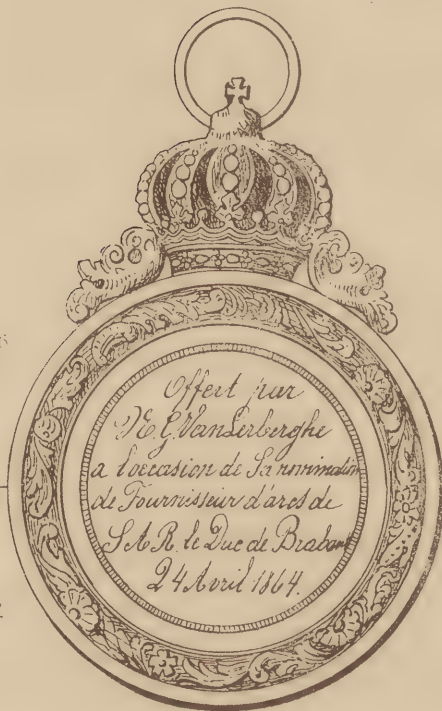 Offert par
N. G. VanLerberghe
a l'occasion de Sa nomination
de Fournisseur d'arcs de
S.A.R. le Duc de Brabant
24 Avril 1864.